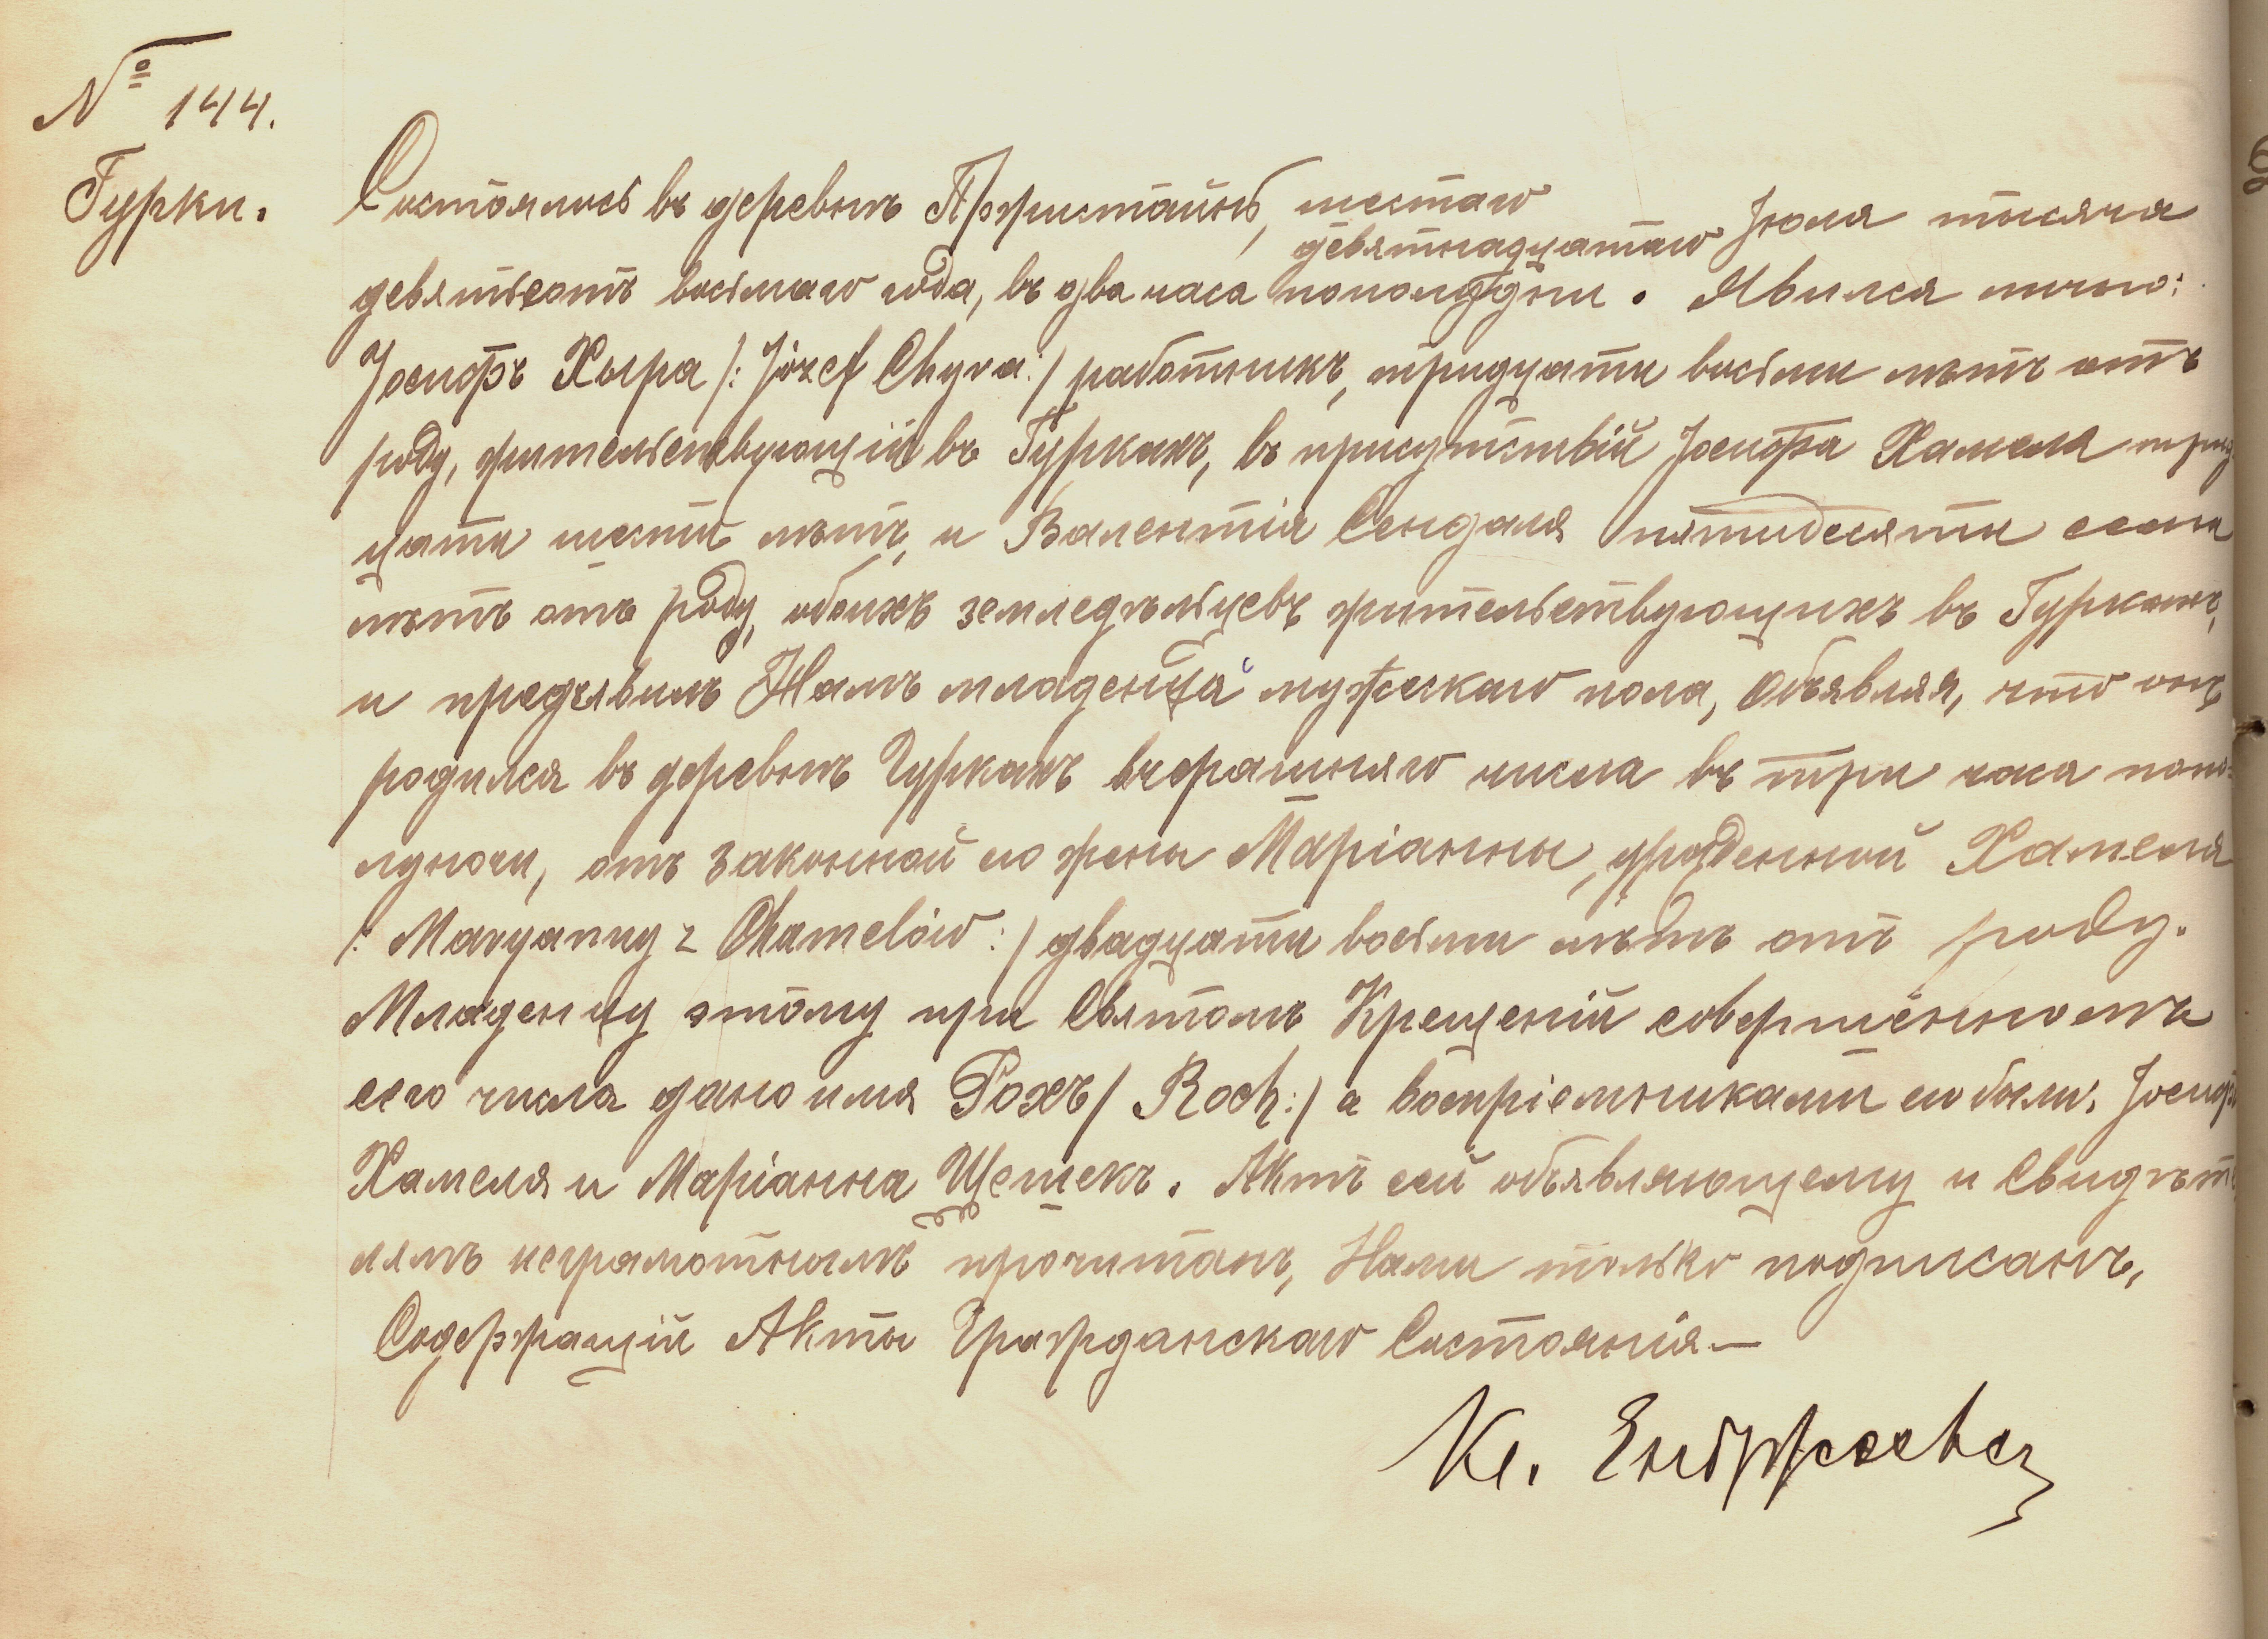 № 144.
Гурки.
Состоялось въ деревнѣ Пржистайнѣ, шестаго
девятнадцатаго Іюля тысяча
девятьсотъ восьмаго года, въ два часа пополудни. Явился лично:
Іосифъ Хыра /: Józef Chyra :/ работникъ, тридцати восьми лѣтъ отъ
роду, жительствующій въ Гуркахъ, въ присутствіи Іосифа Хамеля трид
цати шести лѣтъ, и Валентія Сендаля пятидесяти семи
лѣтъ отъ роду, обоихъ земледѣльцевъ жительствующихъ въ Гуркахъ,
и предъявилъ Намъ младенца мужескаго пола, объявляя, что онъ
родился въ деревнѣ Гуркахъ вчерашняго числа въ три часа попо-
луночи, отъ законной его жены Маріанны, урожденной Хамеля
/: Maryanny z Chamelów :/ двадцати восьми лѣтъ отъ роду.
Младенцу этому при Святомъ Крещеніи совершённомъ
сего числа дано имя Рохъ / Roch :/ а воспріемниками его были: Іосифъ
Хамеля и Маріанна Щешекъ. Актъ сей объявляющему и Свидѣте
лямъ неграмотнымъ прочитанъ, Нами только подписанъ,
Содержащій Акты Гражданскаго Состоянія —
Кс.